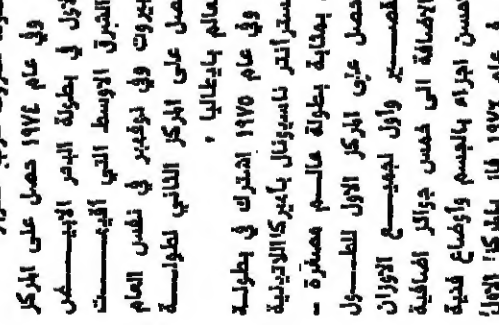 وفي عام ١٩٧٤ حصل على المركز
الاول في بطولة البحر الابيـــض
الشرق الاوسط التي أقيمـــت
بيروت وفي نوفمبر في نفس العام
حصل على المركز الثاني لطولـــة
العالم بايطاليا .
وفي عام ١٩٧٥ اشترك في بطولـــة
مسترأنتر ناسيونال بأميركااللاتينية
بمثابة بطولة عالـــم مصغرة -
حصل على المركز الاول للطـــول
قصـــير وأول لجميـــع الاوزان
الاضافة الى خمس جوائز اضافية
احسن اجزاء بالجسم وأوضاع فنية
في عام ١٩٧٦ فاز بالمركز الاول